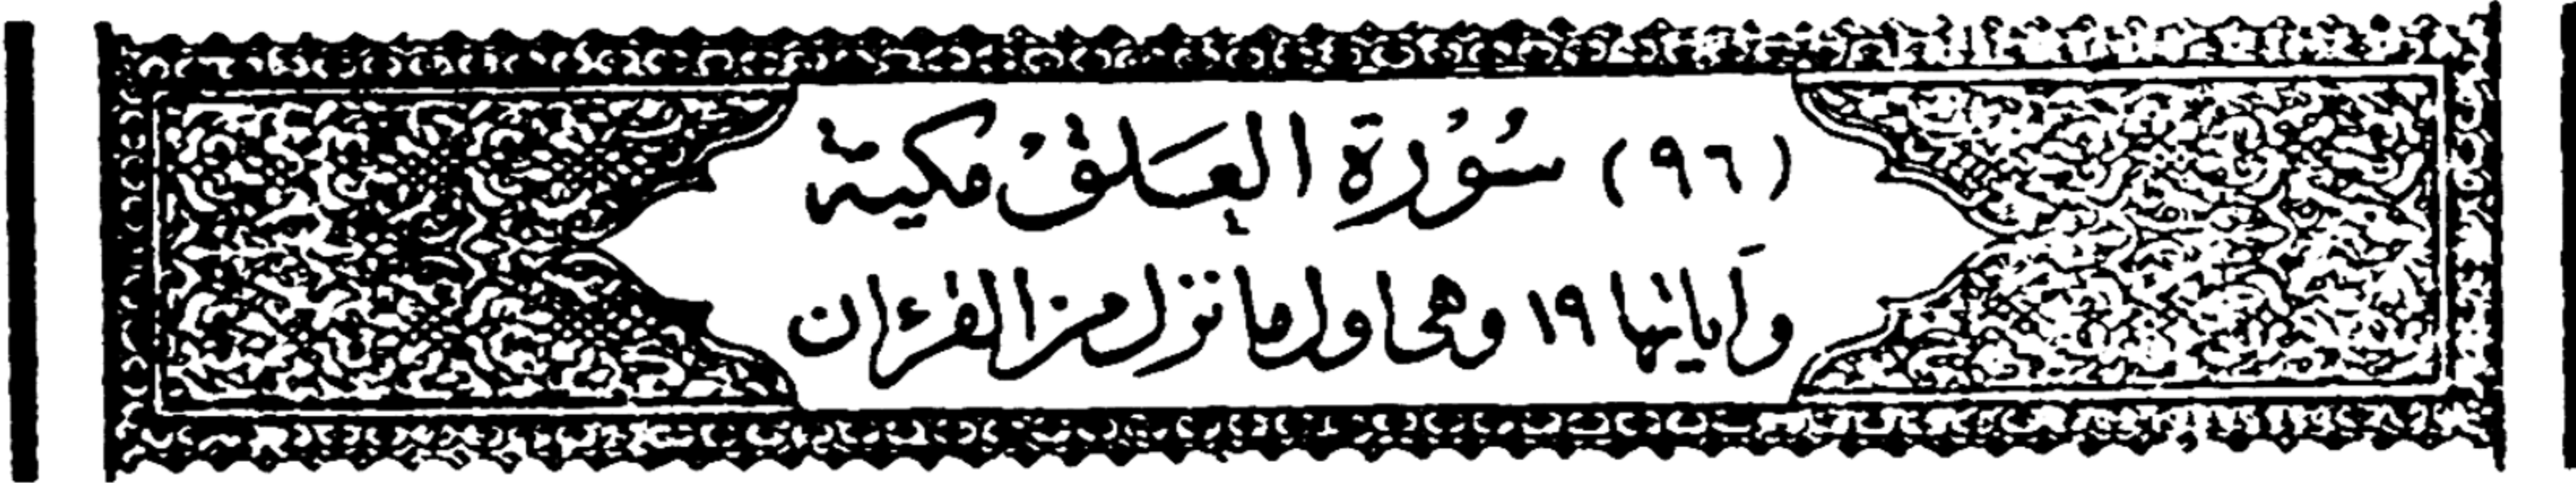 (٩٦) سُوْرَة العَلق مكية
وآياتها ١٩ وهي اول ما نزل من القرءان